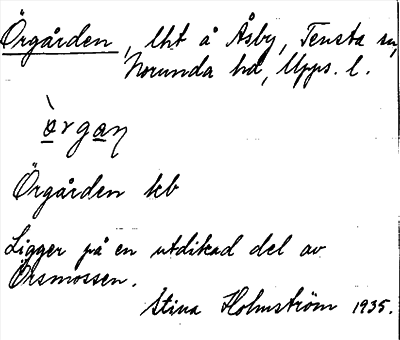 Örgården, lht å Åsby, Tensta sn,
Norunda hd, Upps. l.
ö̀rgaņ
Örgården kb
Ligger på en utdikad del av
Örsmossen.
Stina Holmström 1935.